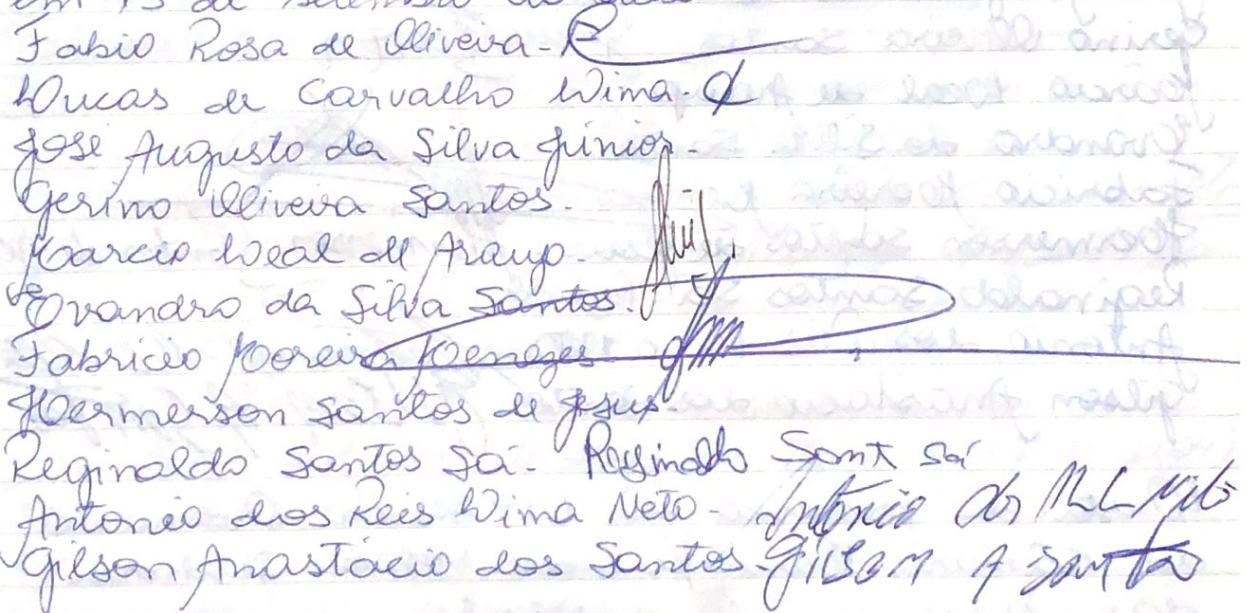 em 13 de setembro de
Fabio Rosa de Oliveira-
Lucas de Carvalho Lima-
José Augusto da Silva Júnior-
Gerino Oliveira Santos.
Marcio Leal de Araujo-
Evandro da Silva Santos.
Fabricio Moreira Menezes
Hermerson Santos de Jesus-
Reginaldo Santos Sá- Reginaldo Sant Sá
Antonio dos Reis Lima Neto- Antônio do R L Neto
Gilson Anastácio dos Santos- Gilson A Santos